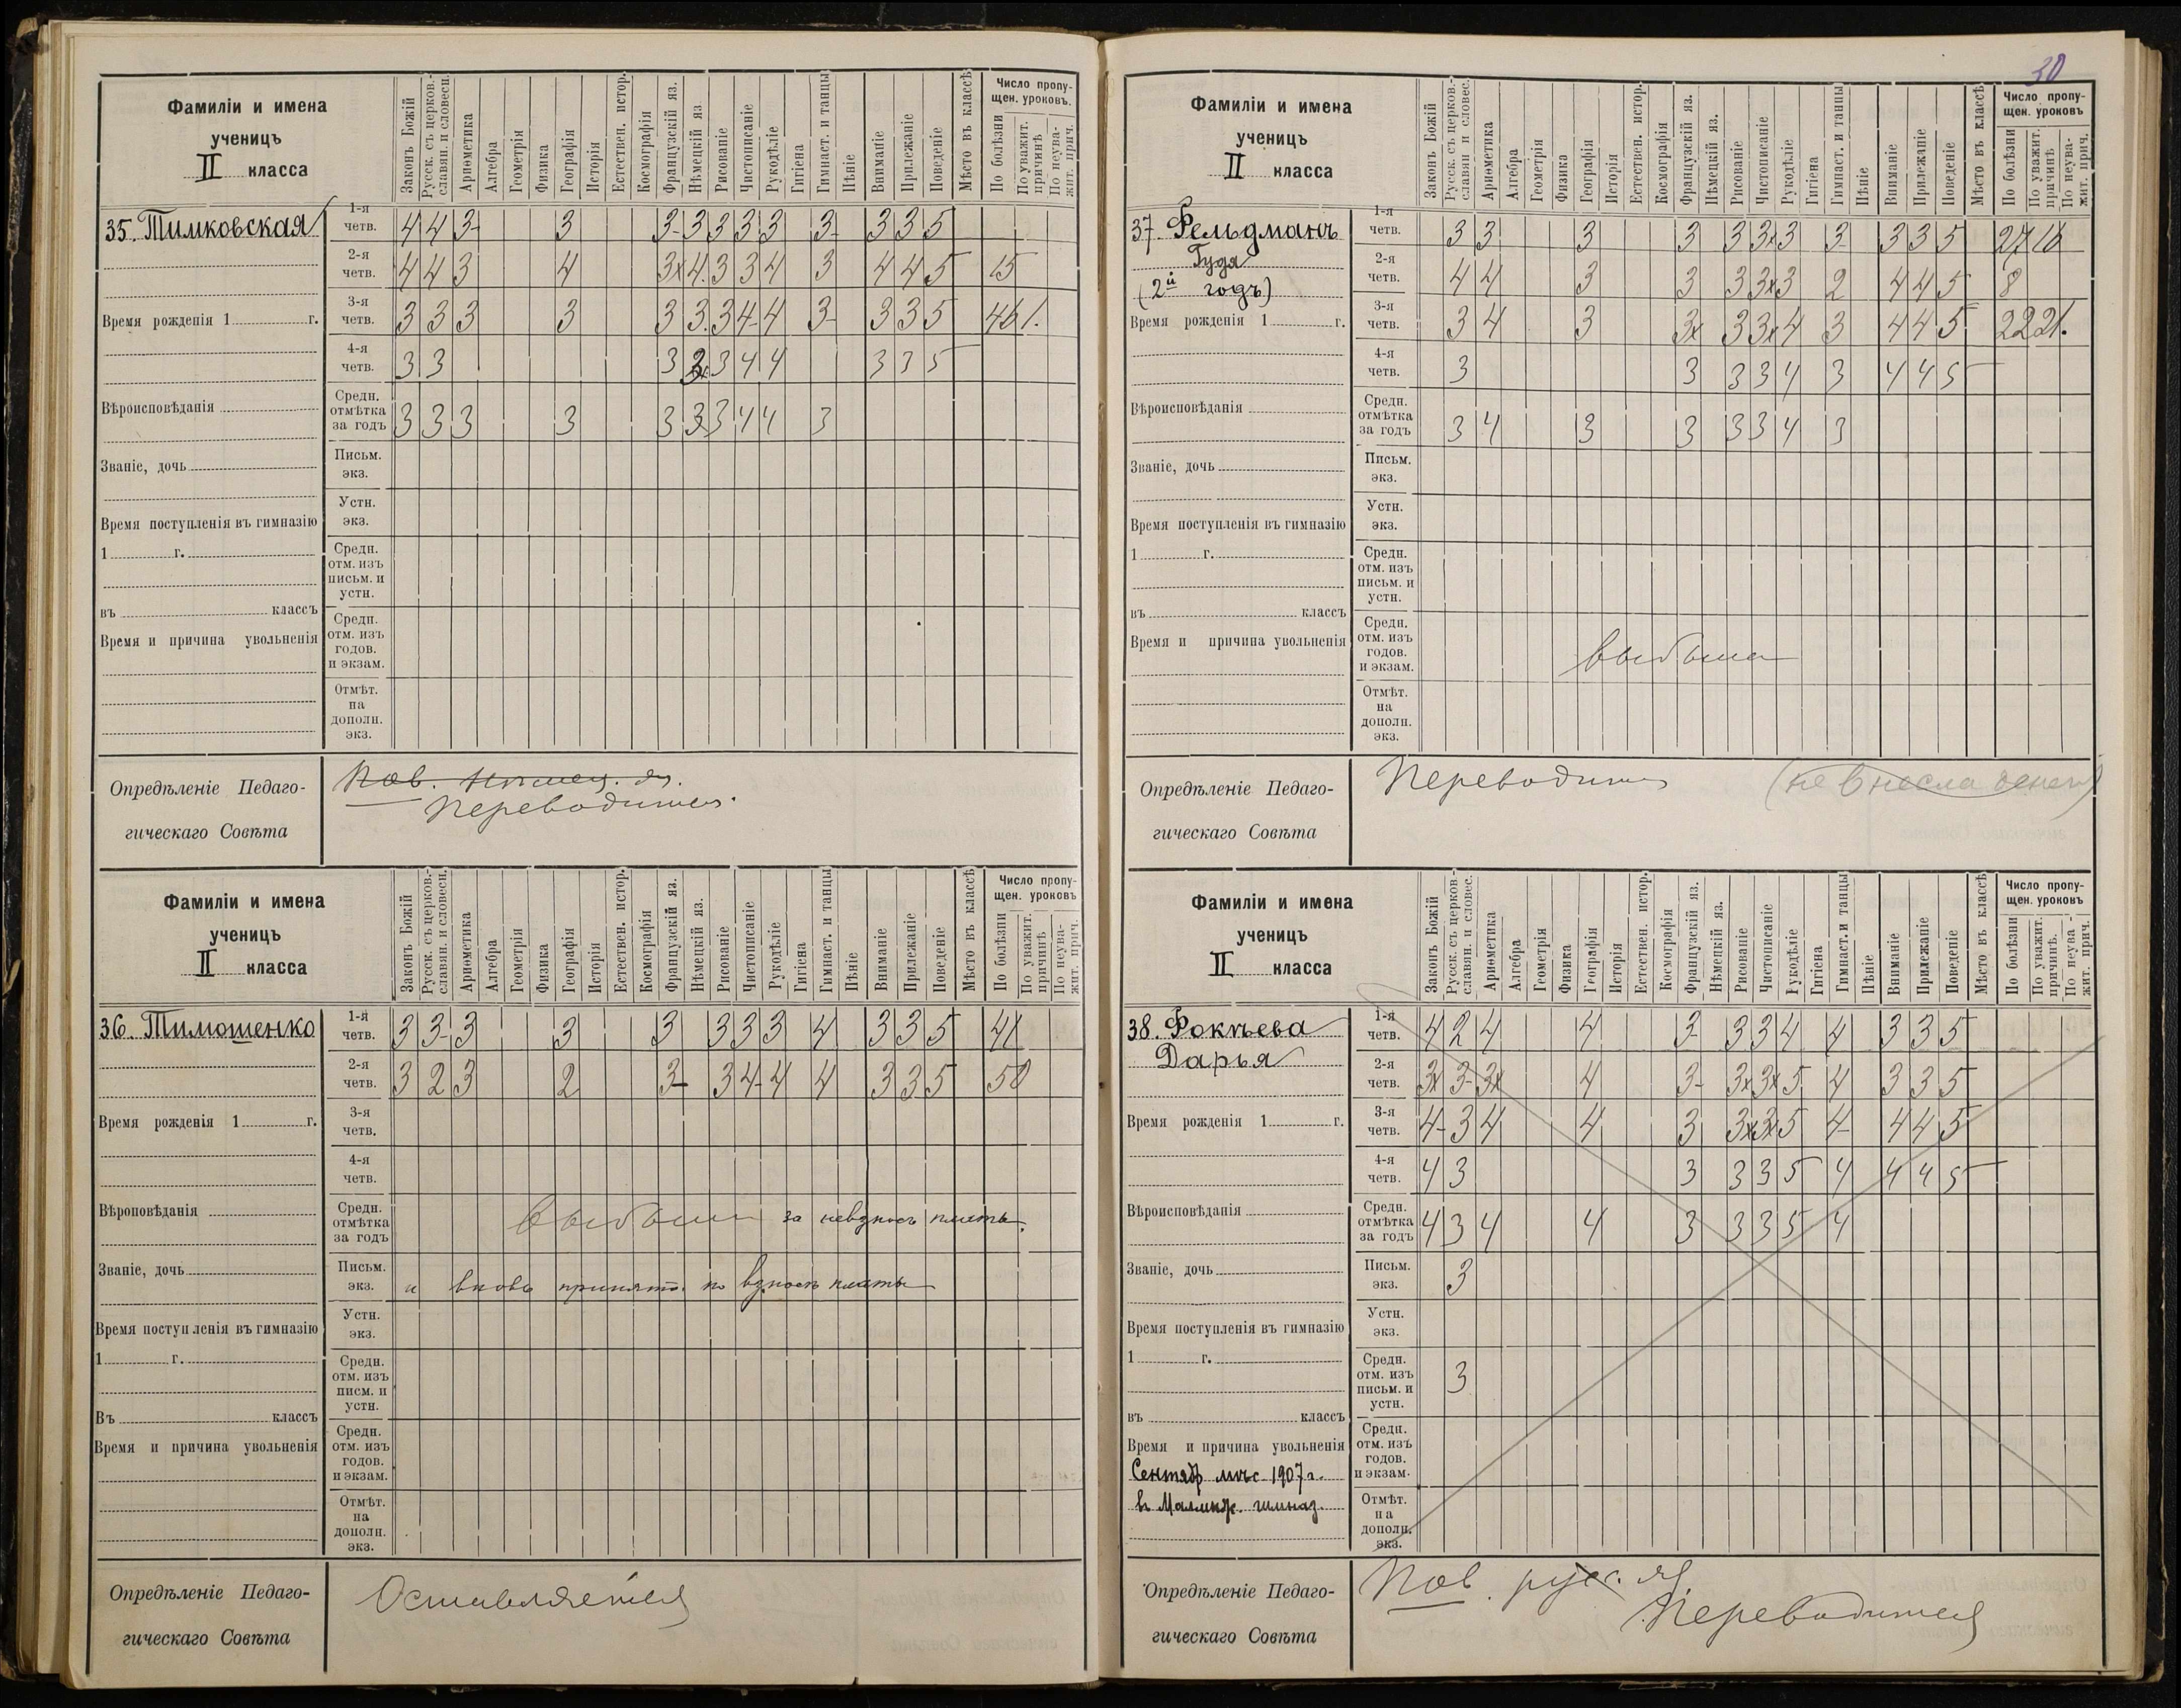 30
Фамиліи и имена
ученицъ
II класса
Законъ Божій
Русск. съ церков.-
славян. и словесн.
Ариѳметика
Алгебра
Геометрія
Физика
Географія
Исторія
Естествен. истор.
Космографія
Французскій яз.
Нѣмецкій яз
Рисованіе
Чистописаніе
Рукодѣліе
Гигіена
Гимнаст. и танцы
Пѣніе
Вниманіе
Прилежаніе
Поведеніе
Мѣсто въ классѣ
Число пропу-
щен. уроковъ.
По болѣзни
По уважит.
причинѣ
По неува-
жит. прич.
35. Тимковская
1-я четв. 4 4 3- 3 3- 3 3 3 3 3- 3 3 5
2-я четв. 4 4 3 4 3x 4. 3 3 4 3 4 4 5 15
3-я четв. 3 3 3 3 3 3. 3 4- 4 3- 3 3 5 46 1.
4-я четв. 3 3 3 3x 3 4 4 3 3 5
Средн. отмѣтка за годъ 3 3 3 3 3 3 3 4 4 3
Время рожденія 1 г.
Вѣроисповѣданія
Званіе, дочь
Время поступленія въ гимназію
1 г.
въ классъ
Время и причина увольненія
Письм. экз.
Устн. экз.
Средн. отм. изъ письм. и устн.
Средн. отм. изъ годов. и экзам.
Отмѣт. на дополн. экз.
Опредѣленіе Педаго-
гическаго Совѣта
Пов. Нѣмец. яз.
Переводится.
Фамиліи и имена
ученицъ
II класса
Законъ Божій
Русск. съ церков.-
славян. и словесн.
Ариѳметика
Алгебра
Геометрія
Физика
Географія
Исторія
Естествен. истор.
Космографія
Французскій яз.
Нѣмецкій яз.
Рисованіе
Чистописаніе
Рукодѣліе
Гигіена
Гимнаст. и танцы
Пѣніе
Вниманіе
Прилежаніе
Поведеніе
Мѣсто въ классѣ
Число пропу-
щен. уроковъ
По болѣзни
По уважит.
причинѣ
По неува-
жит. прич.
36. Тимошенко
1-я четв. 3 3- 3 3 3 3 3 3 4 3 3 5 41
2-я четв. 3 2 3 2 3- 3 4- 4 4 3 3 5 50
3-я четв.
4-я четв.
Средн. отмѣтка за годъ выбыла за невзносъ платы.
Письм. экз. и вновь принята по взносѣ платы
Время рожденія 1 г.
Вѣроповѣданія
Званіе, дочь
Время поступленія въ гимназію
1 г.
Въ классъ
Время и причина увольненія
Устн. экз.
Средн. отм. изъ писм. и устн.
Средн. отм. изъ годов. и экзам.
Отмѣт. на дополн. экз.
Опредѣленіе Педаго-
гическаго Совѣта
Оставляется
Фамиліи и имена
ученицъ
II класса
Законъ Божій
Русск. съ церков.-
славян и словес.
Ариѳметика
Алгебра
Геометрія
Физика
Географія
Исторія
Естествен. истор.
Космографія
Французскій яз.
Нѣмецкій яз.
Рисованіе
Чистописаніе
Рукодѣліе
Гигіена
Гимнаст. и танцы
Пѣніе
Вниманіе
Прилежаніе
Поведеніе
Мѣсто въ классѣ
Число пропу-
щен. уроковъ
По болѣзни
По уважит.
причинѣ
По неува-
жит. прич.
37. Фельдманъ
Гудя
(2й годъ)
1-я четв. 3 3 3 3 3 3x 3 3 3 3 5 27 16
2-я четв. 4 4 3 3 3 3x 3 2 4 4 5 8
3-я четв. 3 4 3 3x 3 3x 4 3 4 4 5 22 21.
4-я четв. 3 3 3 3 4 3 4 4 5
Средн. отмѣтка за годъ 3 4 3 3 3 3 4 3
Время рожденія 1 г.
Вѣроисповѣданія
Званіе, дочь
Время поступленія въ гимназію
1 г.
въ классъ
Время и причина увольненія
Письм. экз.
Устн. экз.
Средн. отм. изъ письм. и устн.
Средн. отм. изъ годов. и экзам. выбыла
Отмѣт. на дополн. экз.
Опредѣленіе Педаго-
гическаго Совѣта
Переводится (не внесла денегъ)
Фамиліи и имена
ученицъ
II класса
Законъ Божій
Русск. съ церков.-
славян. и словес.
Ариѳметика
Алгебра
Геометрія
Физика
Географія
Исторія
Естествен. истор.
Космографія
Французскій яз.
Нѣмецкій яз.
Рисованіе
Чистописаніе
Рукодѣліе
Гигіена
Гимнаст. и танцы
Пѣніе
Вниманіе
Прилежаніе
Поведеніе
Мѣсто въ классѣ
Число пропу-
щен. уроковъ
По болѣзни
По уважит.
причинѣ.
По неува-
жит. прич.
38. Фокѣева
Дарья
1-я четв. 4 2 4 4 3- 3 3 4 4 3 3 5
2-я четв. 3x 3- 3x 4 3- 3x 3x 5 4 3 3 5
3-я четв. 4- 3 4 4 3 3x 3x 5 4- 4 4 5
4-я четв. 4 3 3 3 3 5 4 4 4 5
Средн. отмѣтка за годъ 4 3 4 4 3 3 3 5 4
Письм. экз. 3
Устн. экз.
Средн. отм. изъ письм. и устн. 3
Средн. отм. изъ годов. и экзам.
Отмѣт. на дополн. экз.
Время рожденія 1 г.
Вѣроисповѣданія
Званіе, дочь
Время поступленія въ гимназію
1 г.
въ классъ
Время и причина увольненія
Сентяб мѣс 1907 г.
въ гимназ.
Опредѣленіе Педаго-
гическаго Совѣта
Пов. русс. яз
Переводится